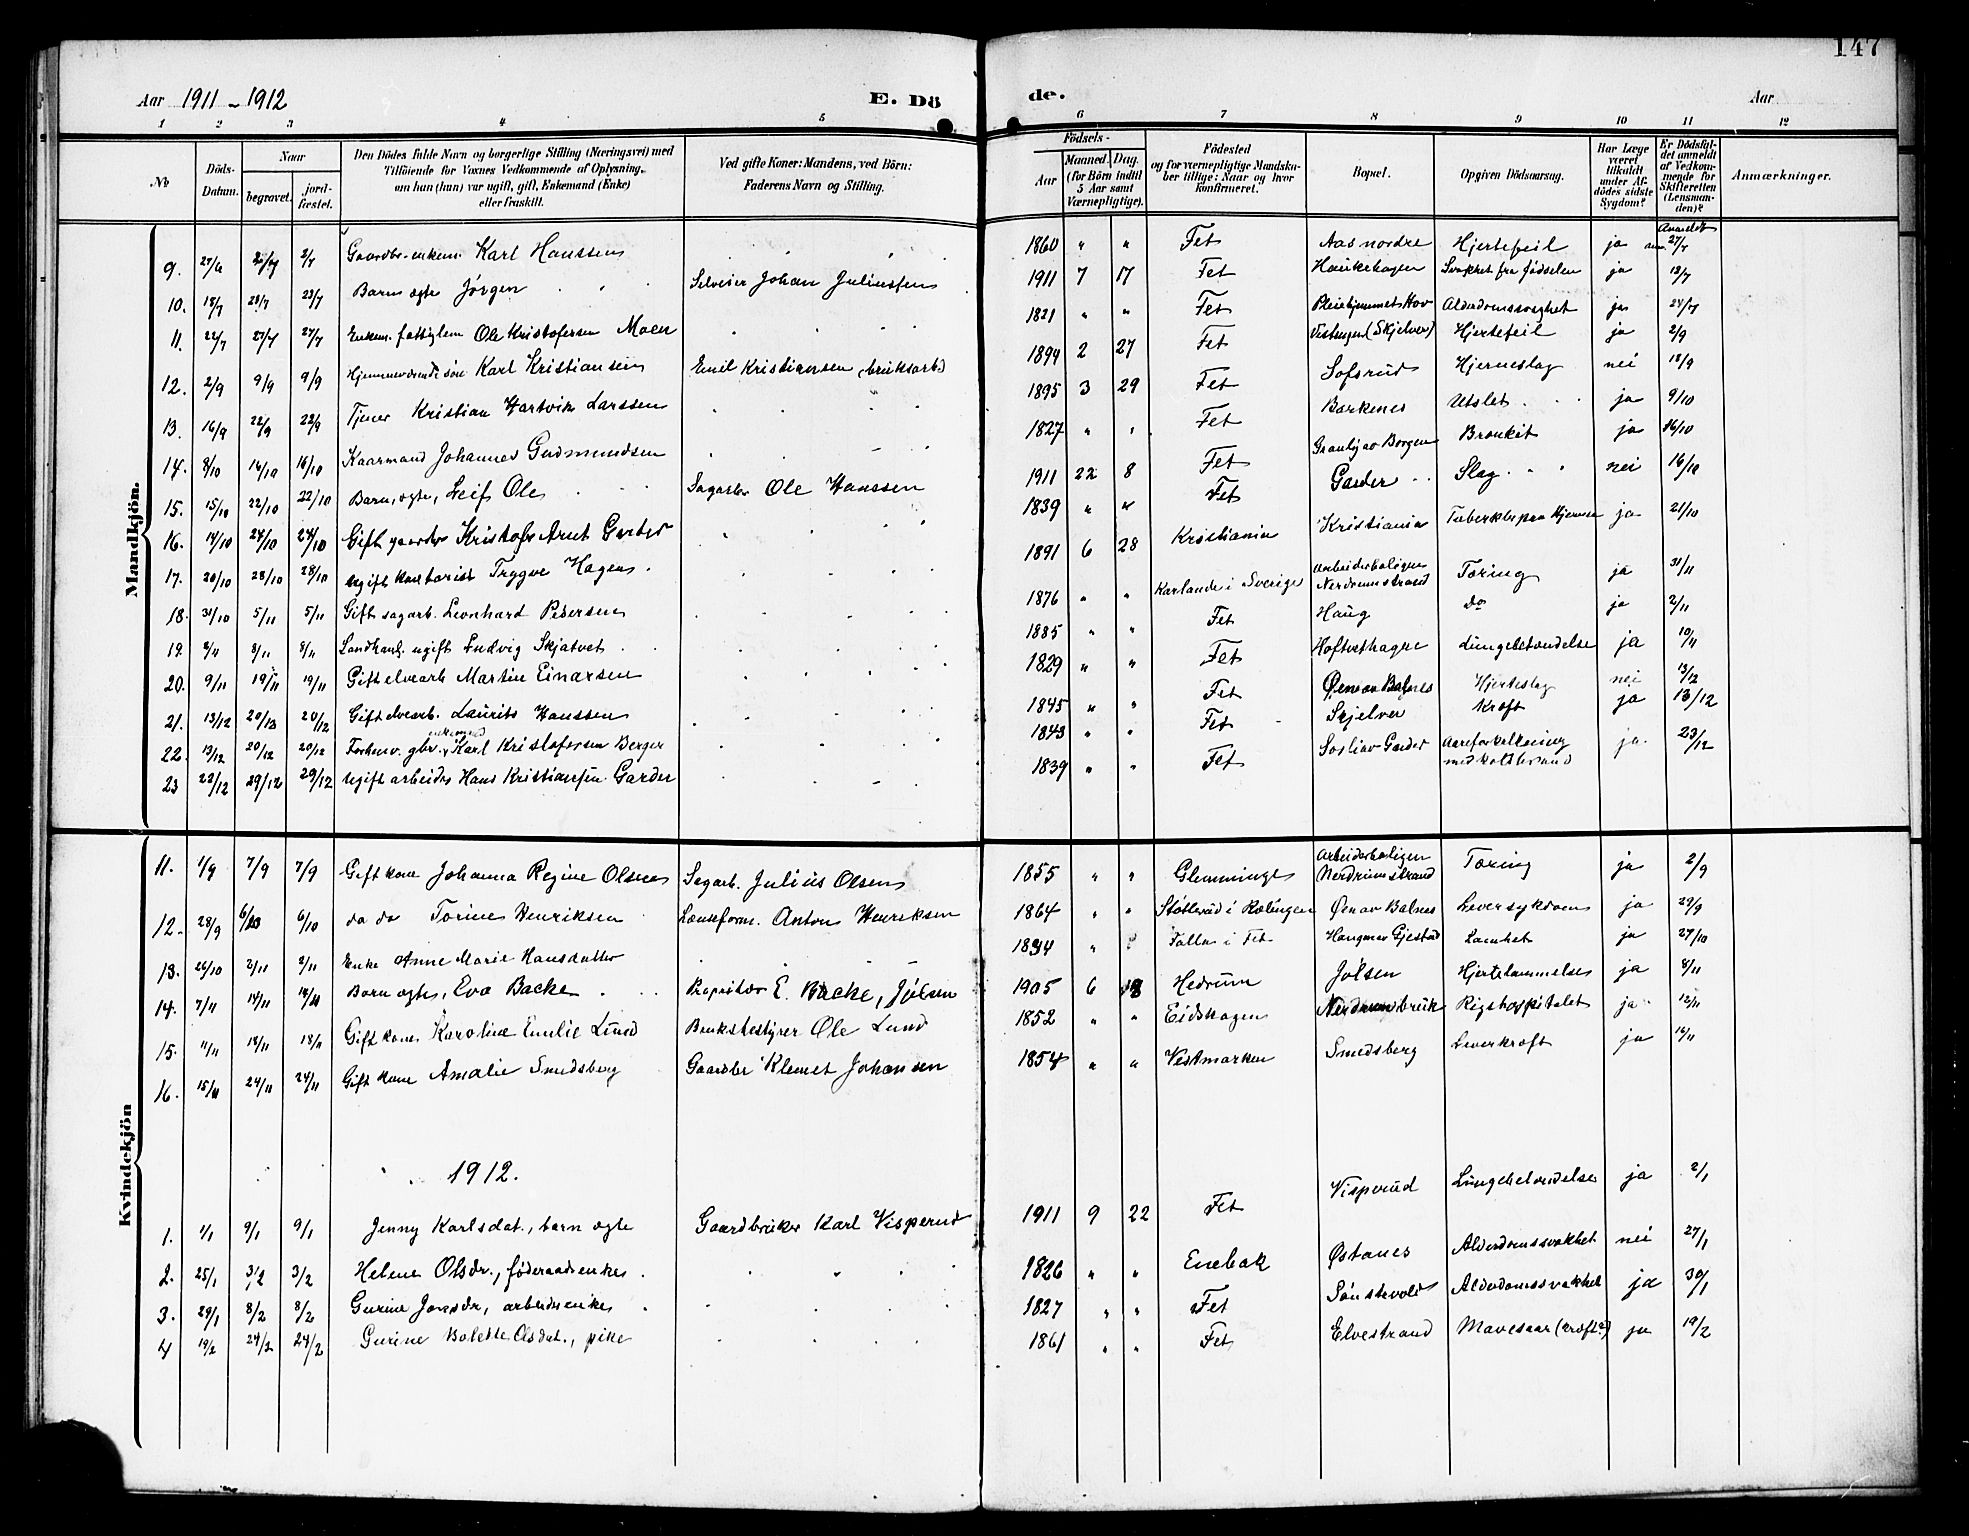 147
Aar 1911 – 1912 E. Dö de. Aar
1 2 3 4 5 6 7 8 9 10 11 12
No
Döds-Datum.
Naar
begravet.
jord-fæstet.
Den Dödes fulde Navn og borgerlige Stilling (Næringsvei) med
Tilföiende for Voxnes Vedkommende af Oplysning,
om han (hun) var ugift, gift, Enkemand (Enke)
eller fraskilt.
Ved gifte Koner: Mandens, ved Börn:
Faderens Navn og Stilling.
Födsels-
Aar
Maaned. Dag.
(for Börn indtil
5 Aar samt
Værnepligtige).
Födested
og for værnepligtige Mandska-
ber tillige: Naar og hvor
konfirmeret.
Bopæl.
Opgiven Dödsaarsag.
Har Læge
været
tilkaldt
under Af-
dødes sidste
Sygdom?
Er Dödsfal-
det anmeldt
af Vedkom-
mende for
Skifteretten
(Lensman-
den)?
Anmærkninger.
Mandkjön.
9. 27/6 2/7 Gaardbr. enkem. Karl Hanssen 1860 " " Fet Aas nordre Hjertefeil ja anm. 27/7
10. 18/7 23/7 23/7 Barn ogte Jörgen Johan Juliussen 1911 7 17 Fet Haukehagen Svakhet fra fødselen ja 18/7
11. 22/7 27/7 27/7 Enkem. fattiglem Ole Kristofersen Moen 1821 " " Fet Pleiehjemmet Hov ja 24/7
12. 2/9 9/9 9/9 Hjemmeværende søn Karl Kristiansen Emil Kristiansen (bruksarb.) 1894 2 27 Fet (Skjelver) Hjertefeil ja 2/9
13. 16/9 22/9 22/9 Tjener Kristian Hartvik Larssen 1895 3 29 Fet Sofsrud Hjerneslag nei 18/9
14. 8/10 14/10 14/10 Kaarmand Johannes Gudmundsen 1827 " " Fet Barkenes Utslet ja 9/10
15. 15/10 22/10 22/10 Barn, ogte, Leif Ole Sagarb. Ole Hanssen 1911 22 8 Fet Granby av Borgen Bronkit ja 16/10
16. 14/10 24/10 24/10 Gift gaardbr Kristofer Arnt Garder 1839 " " Fet Garder Slag nei 16/10
17. 20/10 28/10 28/10 Ugift kontorist Trygve Hagens 1891 6 28 Kristiania Kristiania Tuberkler paa Hjernen ja 21/10
18. 31/10 5/11 5/11 Gift sagarb. Leonhard Pedersen 1876 " " Karlanda i Sverige Arbeiderboligen Nerdrumstrand Tæring ja 31/11
19. 2/11 8/11 8/11 Landhand. ugift Ludvig Skjatvet 1885 " " Fet Haug do ja 2/11
20. 9/11 19/11 19/11 Gift elvearb Martin Einarsen 1829 " " Fet Hoftvethagen Lungebetændelse ja 10/11
21. 13/12 20/12 20/12 Gift elvearb. Laurits Hanssen 1845 " " Fet Øen av Balnes Hjerteslag nei 13/12
22. 13/12 20/12 20/12 Forhenv. gbr. enkemand Karl Kristofersen Berger 1843 " " Fet Skjelver Kræft ja 13/12
23 22/12 29/12 29/12 Ugift arbeider Hans Kristiansen Garder 1839 " " Fet Sosli av Garder Aareforkalkning med koldbrand ja. 23/12
Kvindekjön
11. 1/9 7/9 7/9 Gift kone Johanna Regine Olsen Sagarb. Julius Olsen 1855 " " Glemminge Arbeiderboligen Nerdrumstrand Tæring ja 2/9
12. 28/9 6/10 6/10 do do Torine Henriksen Lænseform. Anton Henriksen 1864 " " Støtterud i Rælingen Øen av Balnes Leversykdom ja 29/9
13. 26/10 2/11 2/11 Enke Anne Marie Hansdatter 1834 " Falla i Fet Haugen av Gjestad Lamhet ja 27/10
14. 7/11 14/11 14/11 Barn ogte, Eva Backe Proprietær E. Backe, Jölsen 1905 6 18 Hedrum Jølsen Hjertelammelse ja 8/11
15. 11/11 18/11 18/11 Gift kone Karoline Emilie Lund Bruksbestyrer Ole Lund 1852 " " Eidskogen Nerdrum bruk Rigshospitalet ja 12/11
16. 15/11 24/11 24/11 Gift kone Amalie Smedsberg Gaardbr Klemet Johansen 1854 " " Vestmarken Smedsberg Leverkræft ja 16/11
1912.
1. 1/1 9/1 9/1 Jenny Karlsdat., barn ogte Gaardbruker Karl Visperud 1911 9 22 Fet Visperud Lungebetændelse ja 2/1
2. 25/1 3/2 3/2 Helene Olsdr., föderaadsenke 1826 " " Enebak Østanes Alderdomssvakhet nei 27/1
3. 29/1 8/2 8/2 Gurine Jonsdr, arbeiderenke 1827 " " Fet Sönstevold Alderdomssvakhet ja 30/1
4 19/2 24/2 24/2 Gurine Bolette Olsdat., pike 1861 " " Fet Elvestrand Mavesaar (kræft?) ja 19/2